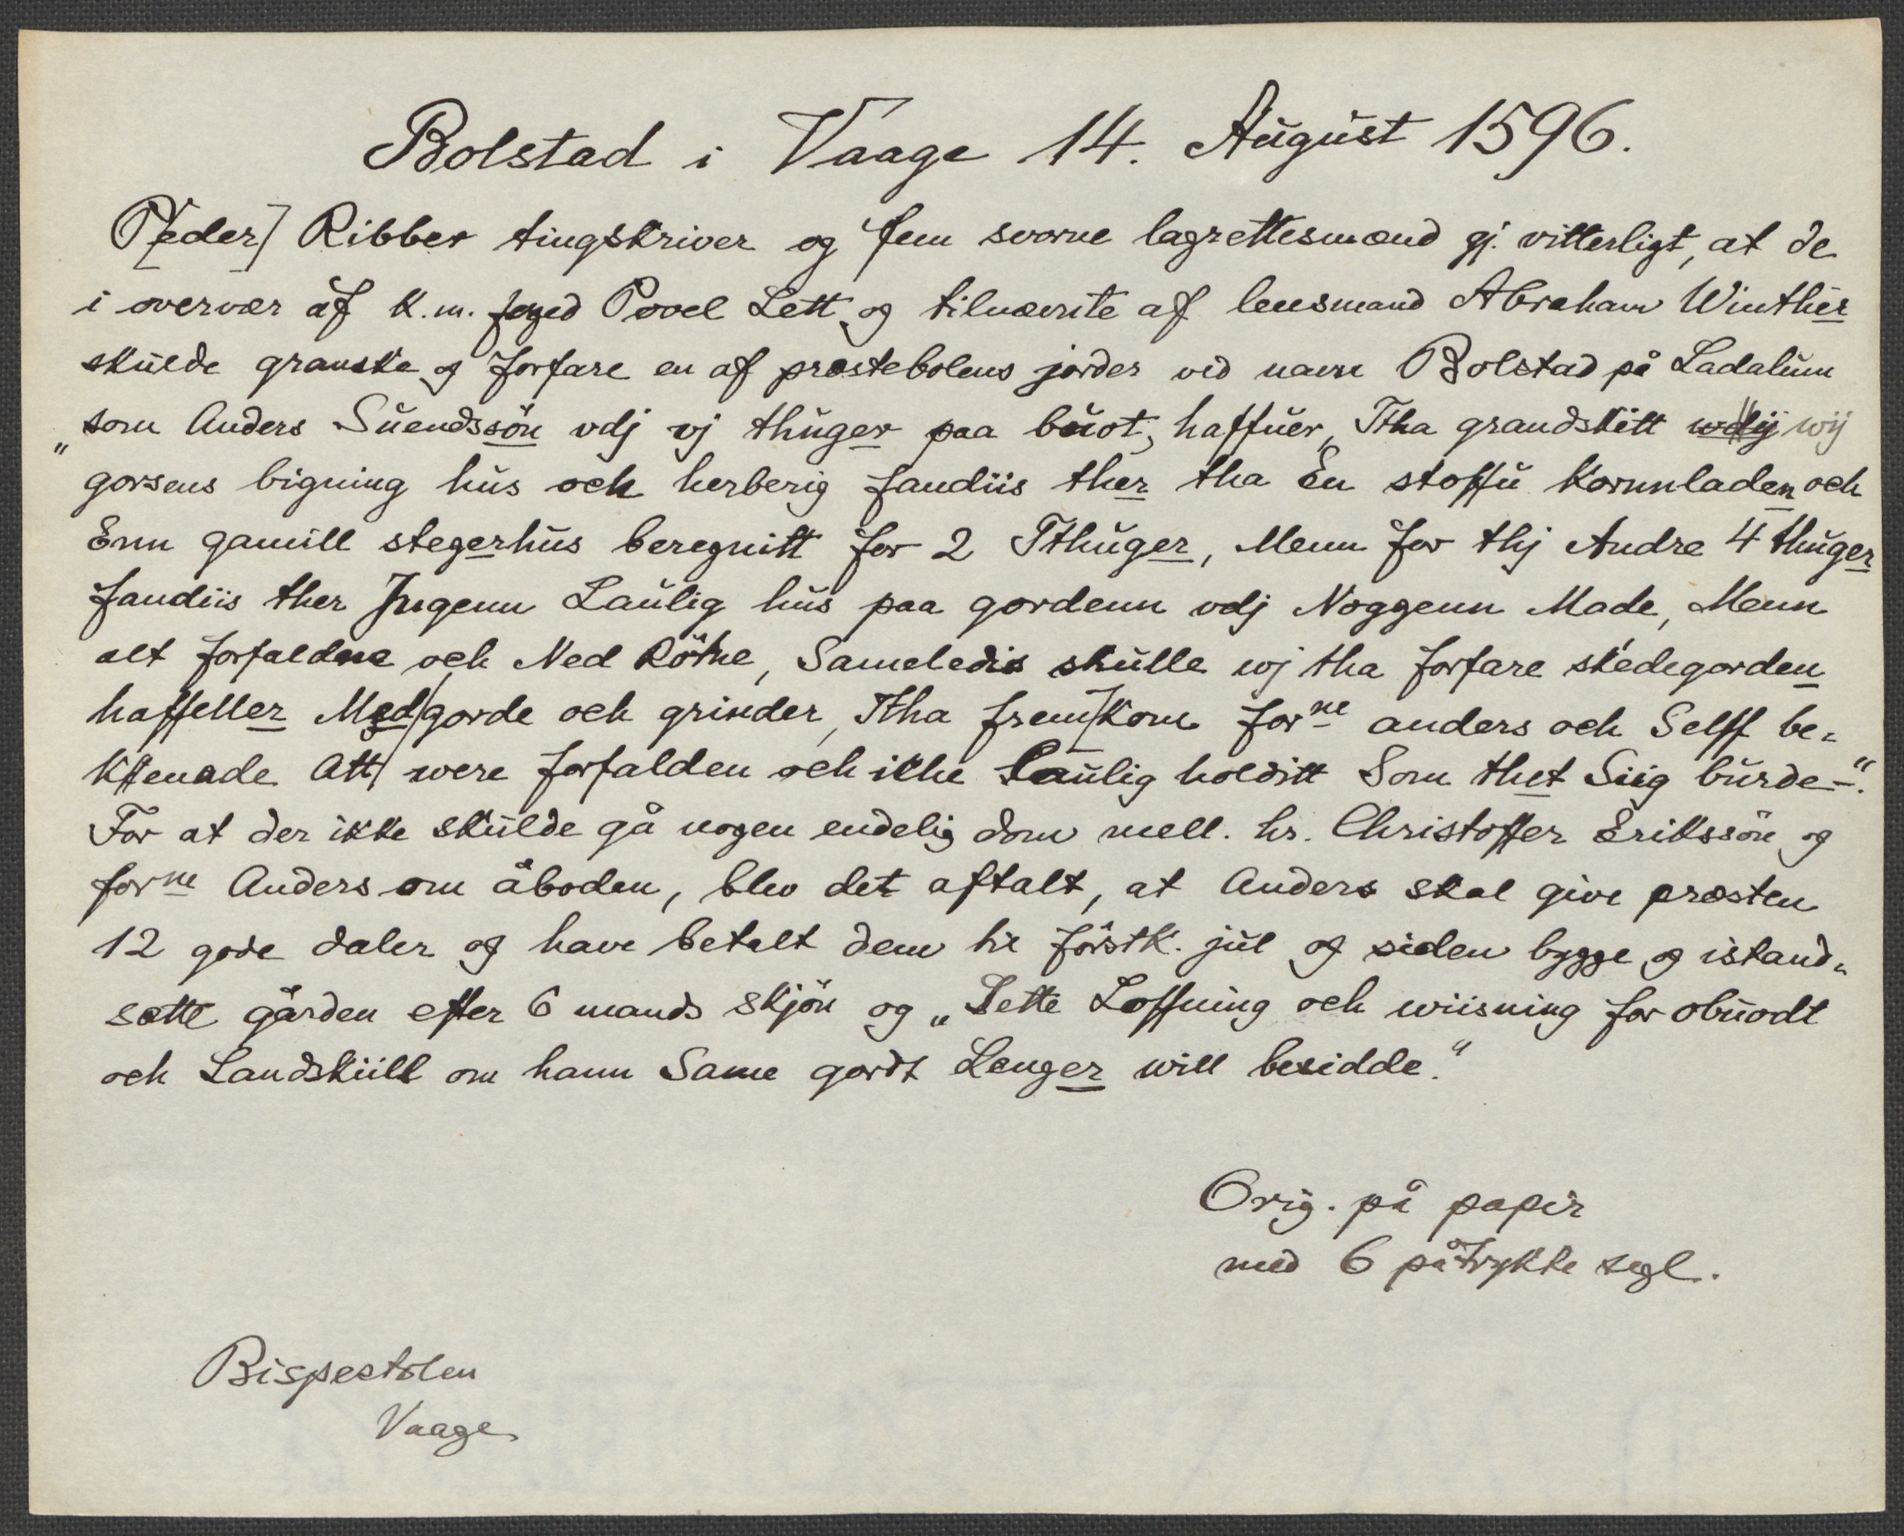 Bolstad i Vaage 14. August 1596.
P[eder] Ribber tingskriver og fem svorne lagrettesmænd gj. vitterligt, at de
i overvær af K.m. foged Povel Lett og tilnævnte af lensmand Abraham Winther
skulde granske og forfare en af præstebolens jorder ved navn Bolstad på Ladalum
„som Anders Suendssön vdj vj thuger paa buot, haffuer, Ttha grandskitt wij
gorsens bigning hus och herberig fandiis ther tha En stoffu Kornnladen och
Enn gamill stegerhus beregnitt for 2 Tthuger, Menn for thj Andre 4 thuger
fandiis ther Jngenn Laulig hus paa gordenn vdj Noggenn Made, Menn
alt forfaldne och Ned Röthe, Sameledis skulle wj tha forfare skedegorden
haffeller Med/gorde och grinder, Ttha fremkom forne anders och Selff be-
Kienade Att were forfalden och ikke Laulig holditt Som thet Siig burde–“.
For at der ikke skulde gå nogen endelig dom mell. hr. Christoffer Erikssön og
forne Anders om åboden, blev det aftalt, at Anders skal give præsten
12 gode daler og have betalt dem til förstk. jul og siden bygge og istand-
sætte gården efter 6 mands skjön og „Sette Loffning och wiisning for obuodt
och Landskiill om hann Same gordt Lenger will besidde.“
Orig. på papir
med 6 påtrykte segl.
Bispestolen
Vaage